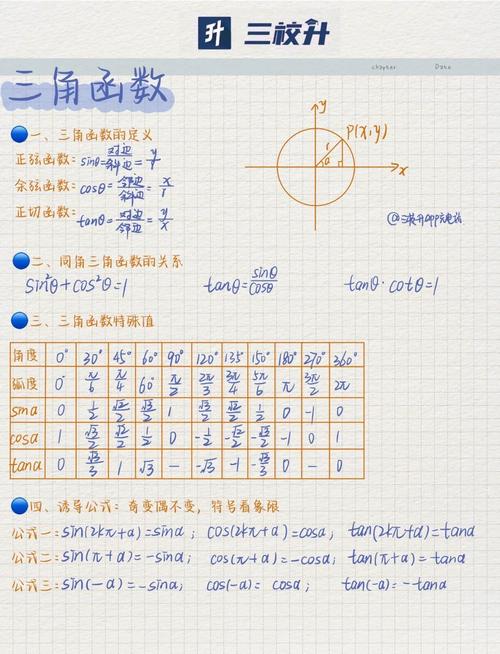 升 三校升
chapter Date
三角函数
一、三角函数的定义
正弦函数: sinθ=对边/斜边=y/r
余弦函数: cosθ=邻边/斜边=x/r
正切函数: tanθ=对边/邻边=y/x
y
P(x,y)
r
x
二、同角三角函数的关系
sin²θ+cos²θ=1 tanθ=sinθ/cosθ tanθ·cotθ=1
三、三角函数特殊值
角度 0° 30° 45° 60° 90° 120° 135° 150° 180° 270° 360°
弧度 0° π/6 π/4 60° π/2 2π/3 3π/4 5π/6 π 3π/2 2π
sinα 0 1/2 √2/2 √3/2 1 √3/2 √2/2 1/2 0 -1 0
cosα 1 √3/2 √2/2 1/2 0 -1/2 -√2/2 -√3/2 -1 0 1
tanα 0 √3/3 1 √3 — -√3 -1 -√3/3 0 — 0
四、诱导公式: 奇变偶不变，符号看象限
公式一: sin(2kπ+α)=sinα; cos(2kπ+α)=cosα; tan(2kπ+α)=tanα
公式二: sin(π+α)=-sinα; cos(π+α)=-cosα; tan(π+α)=tanα
公式三: sin(-α)=-sinα; cos(-α)=cosα; tan(-α)=-tanα